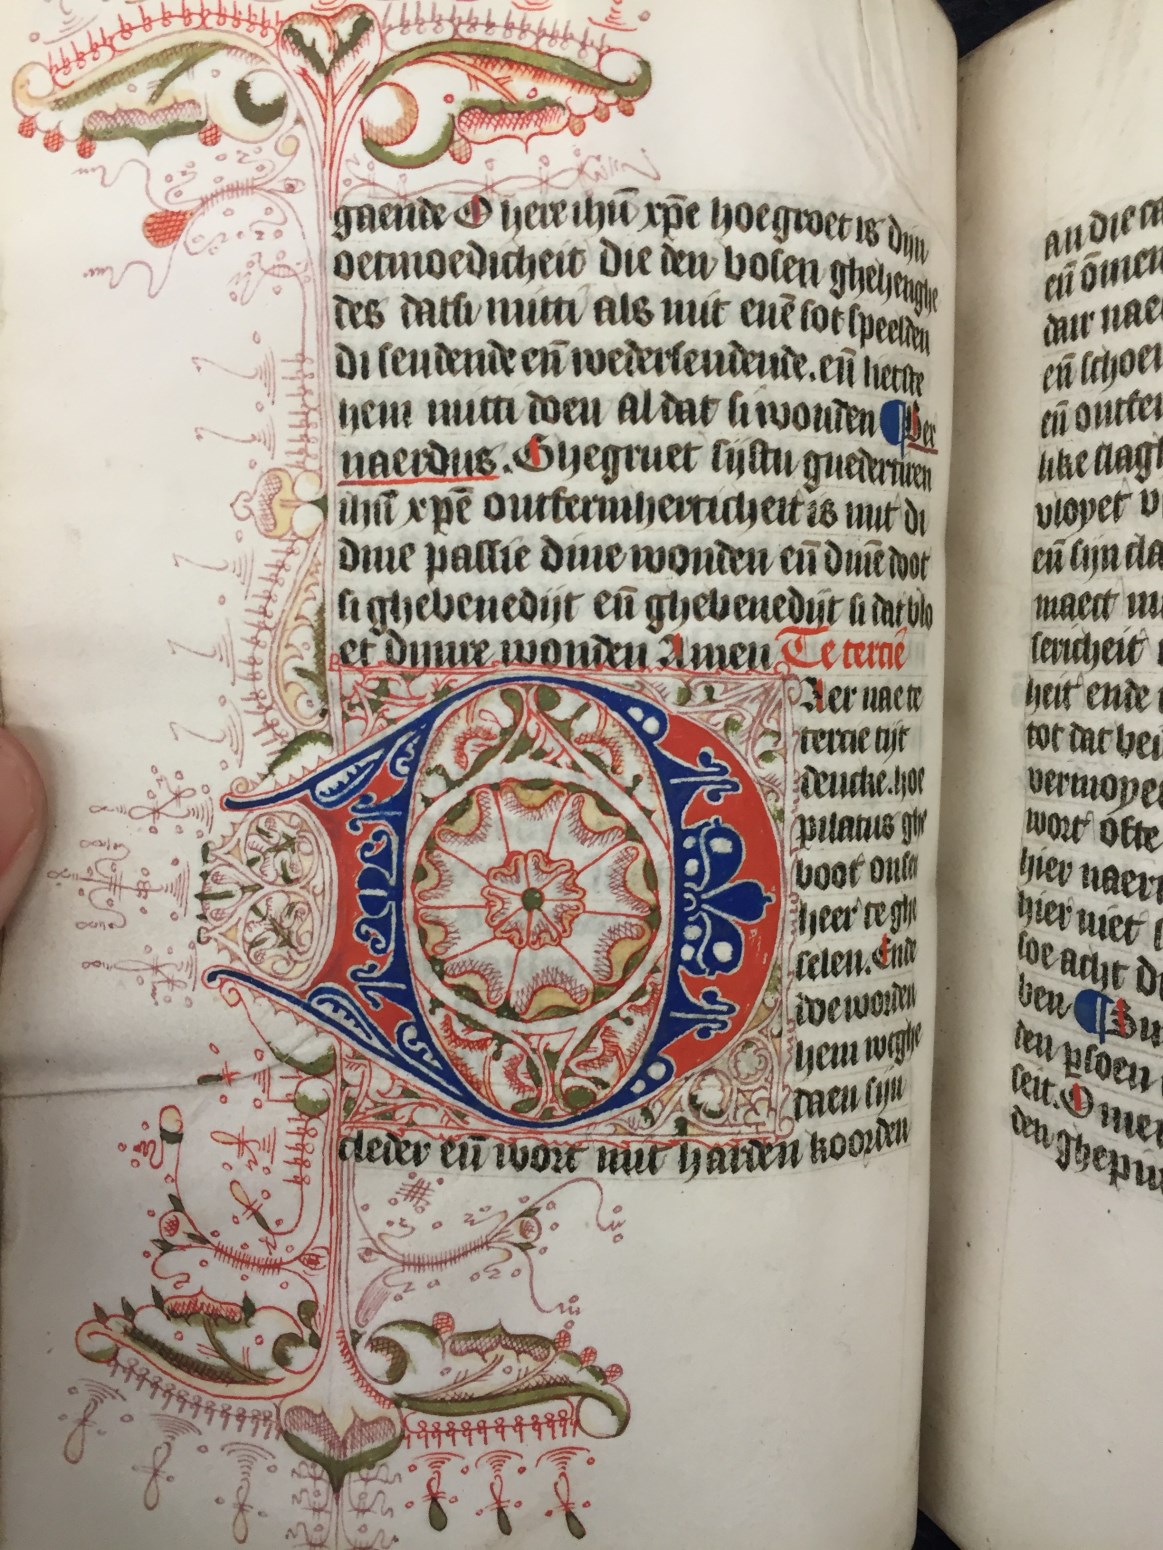 gaende O here ihū xpē hoe groet is dijn
oetmoedicheit die den bosen ghehenghe
des datsi mitti als mit enē sot speelden
di sendende eñ wedersendende. eñ lietste
hem mitti doen Al dat si wouden ¶ Ber
naerdus. Ghegruet sijstu guedertiren
ihū xpē ontfermherticheit is mit di
dine passie dine wonden eñ dinē doot
si ghebenedijt eñ ghebenedijt si dat blo
et dinre wonden Amen Te tercië
D Aer nae te
tercie tijt
dencke. hoe
pilatus ghe
boot onsen
heer te ghe
selen. Ende
doe worden
hem wtghe
daen sijn
cleder eñ wort mit harden koorden
an die
eñ
dair nae
eñ schoe
eñ
like slagh
vloyet v
eñ sijn da
maect
sericheit
heit ende
tot dat be
vermoye
wort ofte
hier naer
hier niet
soe acht di
ben ¶
den psoen
seit. O mer
den ghepi